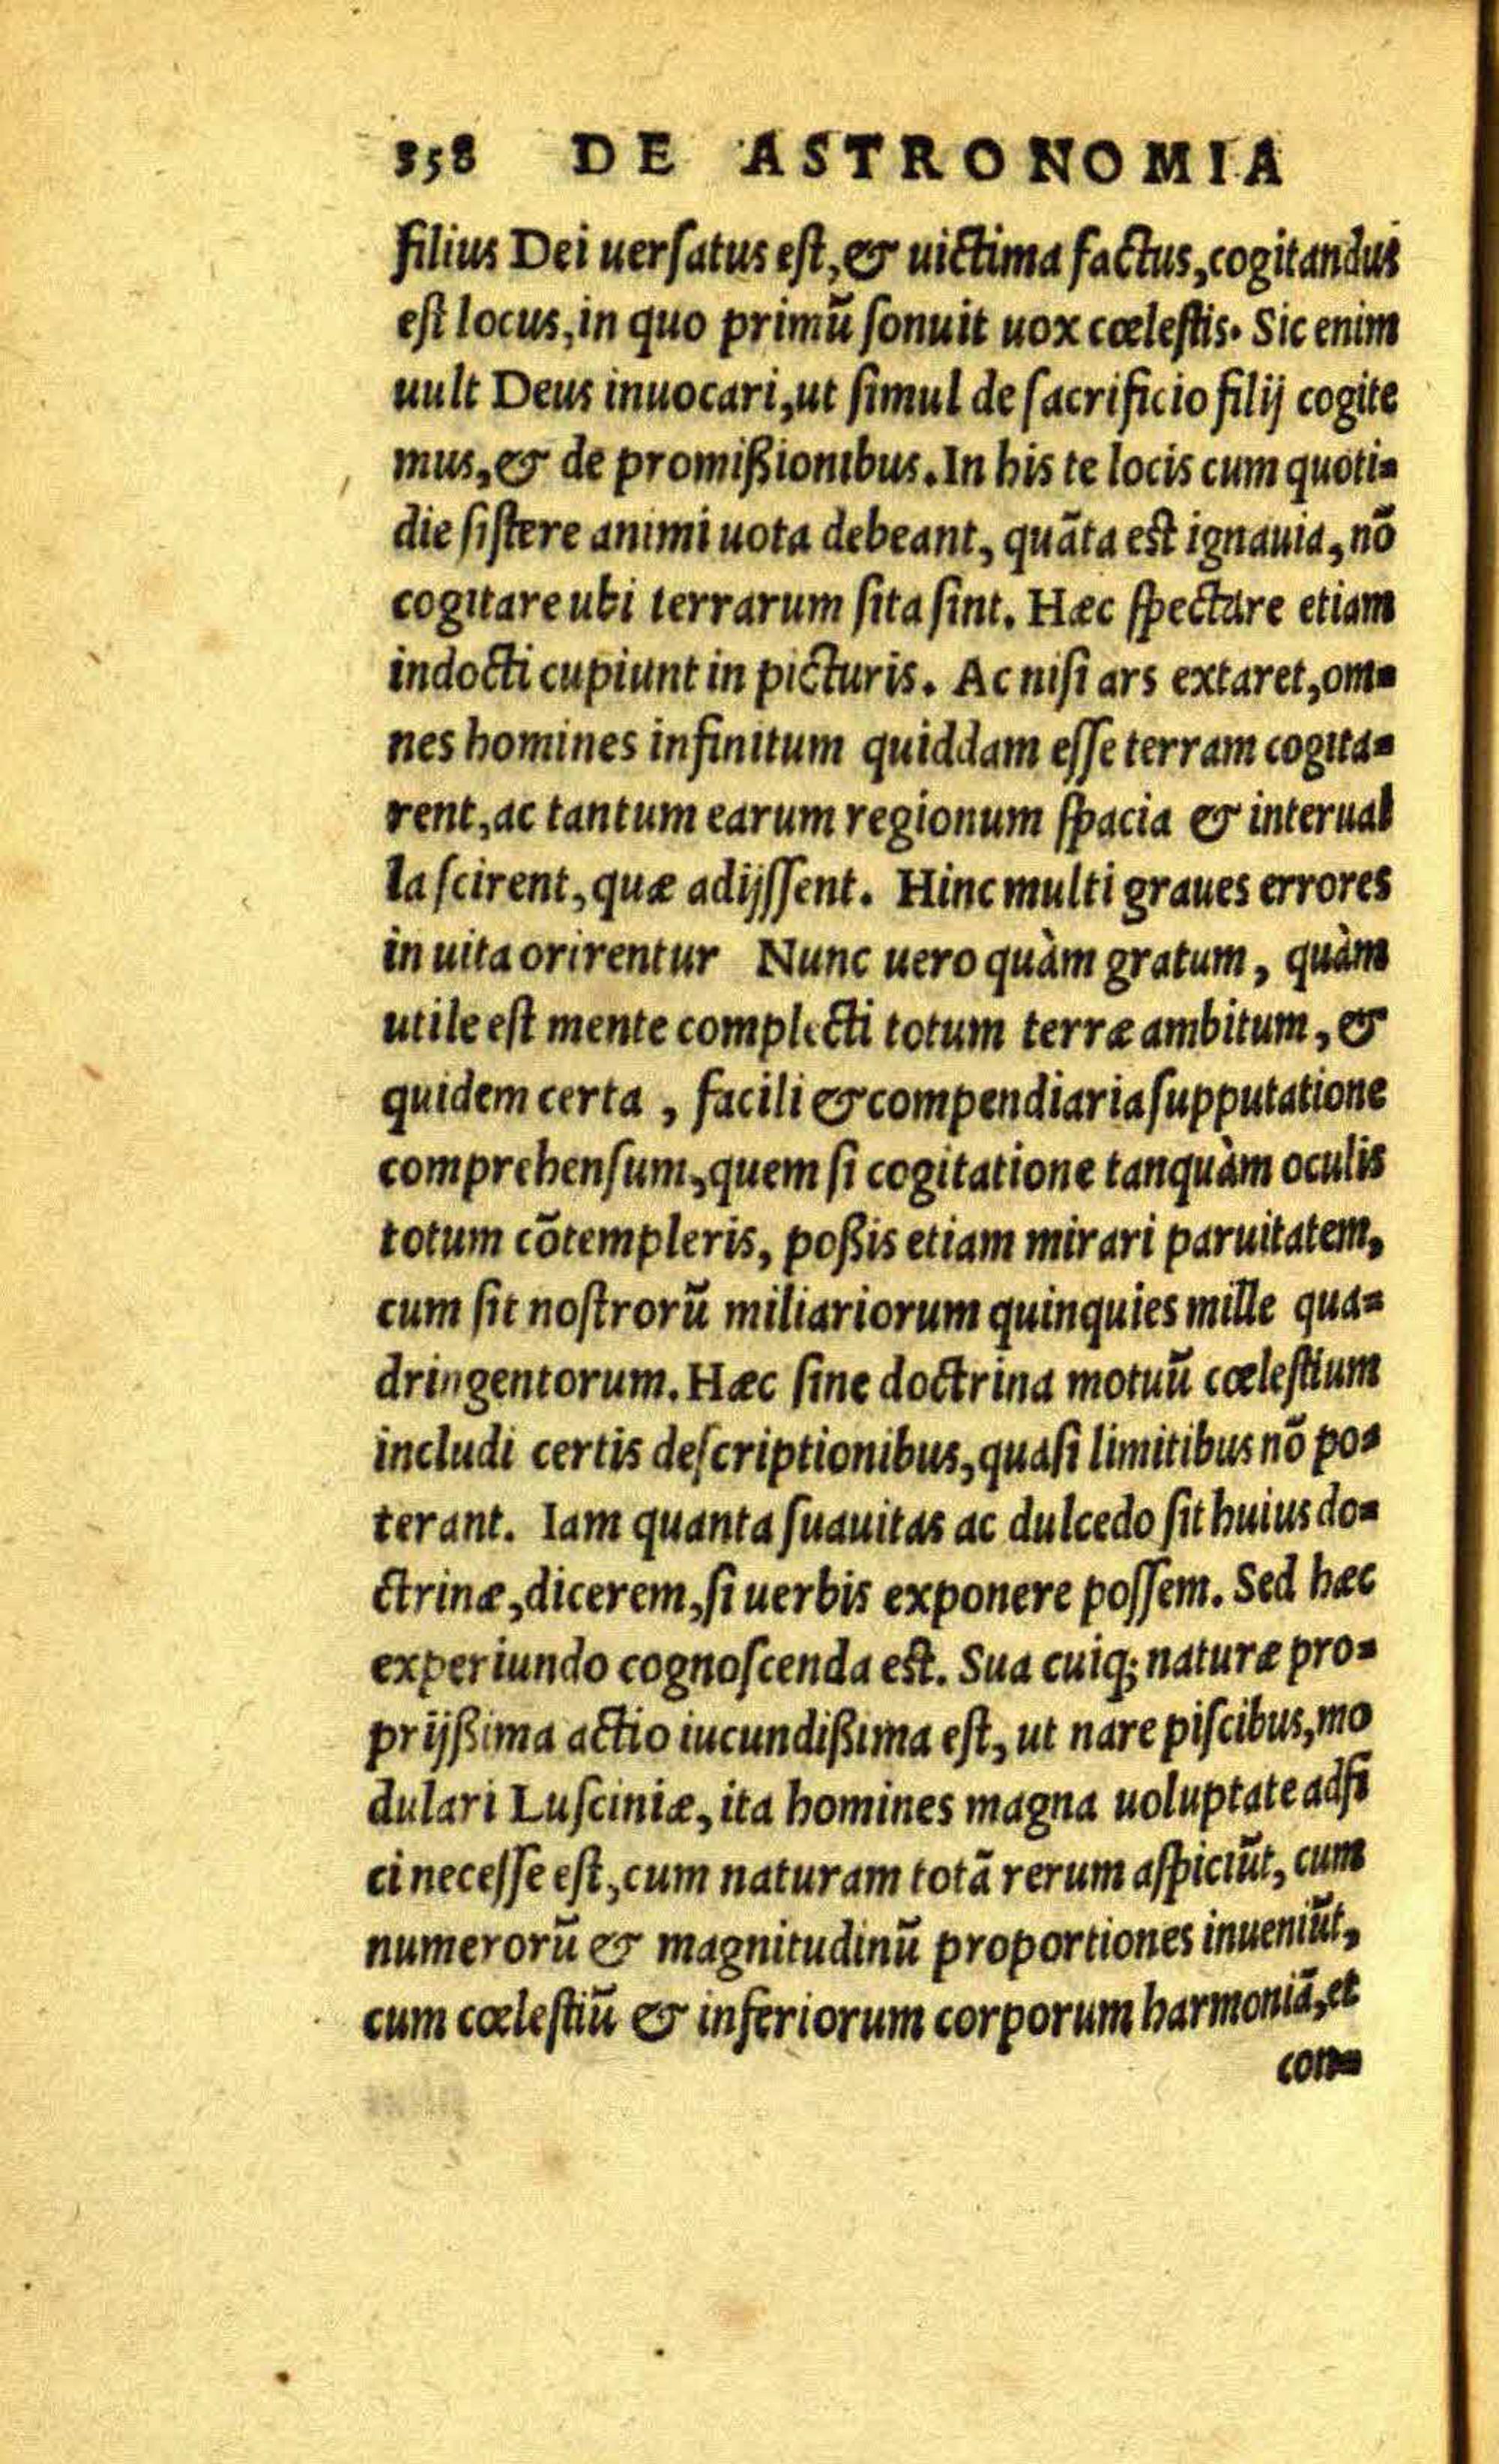 358 DE ASTRONOMIA
filius Dei uersatus est, & uictima factus, cogitandus
est locus, in quo primũ sonuit uox cœlestis. Sic enim
uult Deus inuocari, ut simul de sacrificio filij cogite
mus, & de promißionibus. In his te locis cum quoti-
die sistere animi uota debeant, quãta est ignauia, nõ
cogitare ubi terrarum sita sint. Hæc spectare etiam
indocti cupiunt in picturis. Ac nisi ars extaret, om-
nes homines infinitum quiddam esse terram cogita-
rent, ac tantum earum regionum spacia & interual
la scirent, quæ adijssent. Hinc multi graues errores
in uita orirentur Nunc uero quàm gratum, quàm
utile est mente complecti totum terræ ambitum, &
quidem certa, facili & compendiaria supputatione
comprehensum, quem si cogitatione tanquàm oculis
totum cõtempleris, poßis etiam mirari paruitatem,
cum sit nostrorũ miliariorum quinquies mille qua-
dringentorum. Hæc sine doctrina motuũ cœlestium
includi certis descriptionibus, quasi limitibus nõ po-
terant. Iam quanta suauitas ac dulcedo sit huius do-
ctrinæ, dicerem, si uerbis exponere possem. Sed hæc
experiundo cognoscenda est. Sua cuiq; naturæ pro-
prijßima actio iucundißima est, ut nare piscibus, mo
dulari Lusciniæ, ita homines magna uoluptate adfi
ci necesse est, cum naturam totã rerum aspiciũt, cum
numerorũ & magnitudinũ proportiones inueniũt,
cum cœlestiũ & inferiorum corporum harmoniã, et
con-